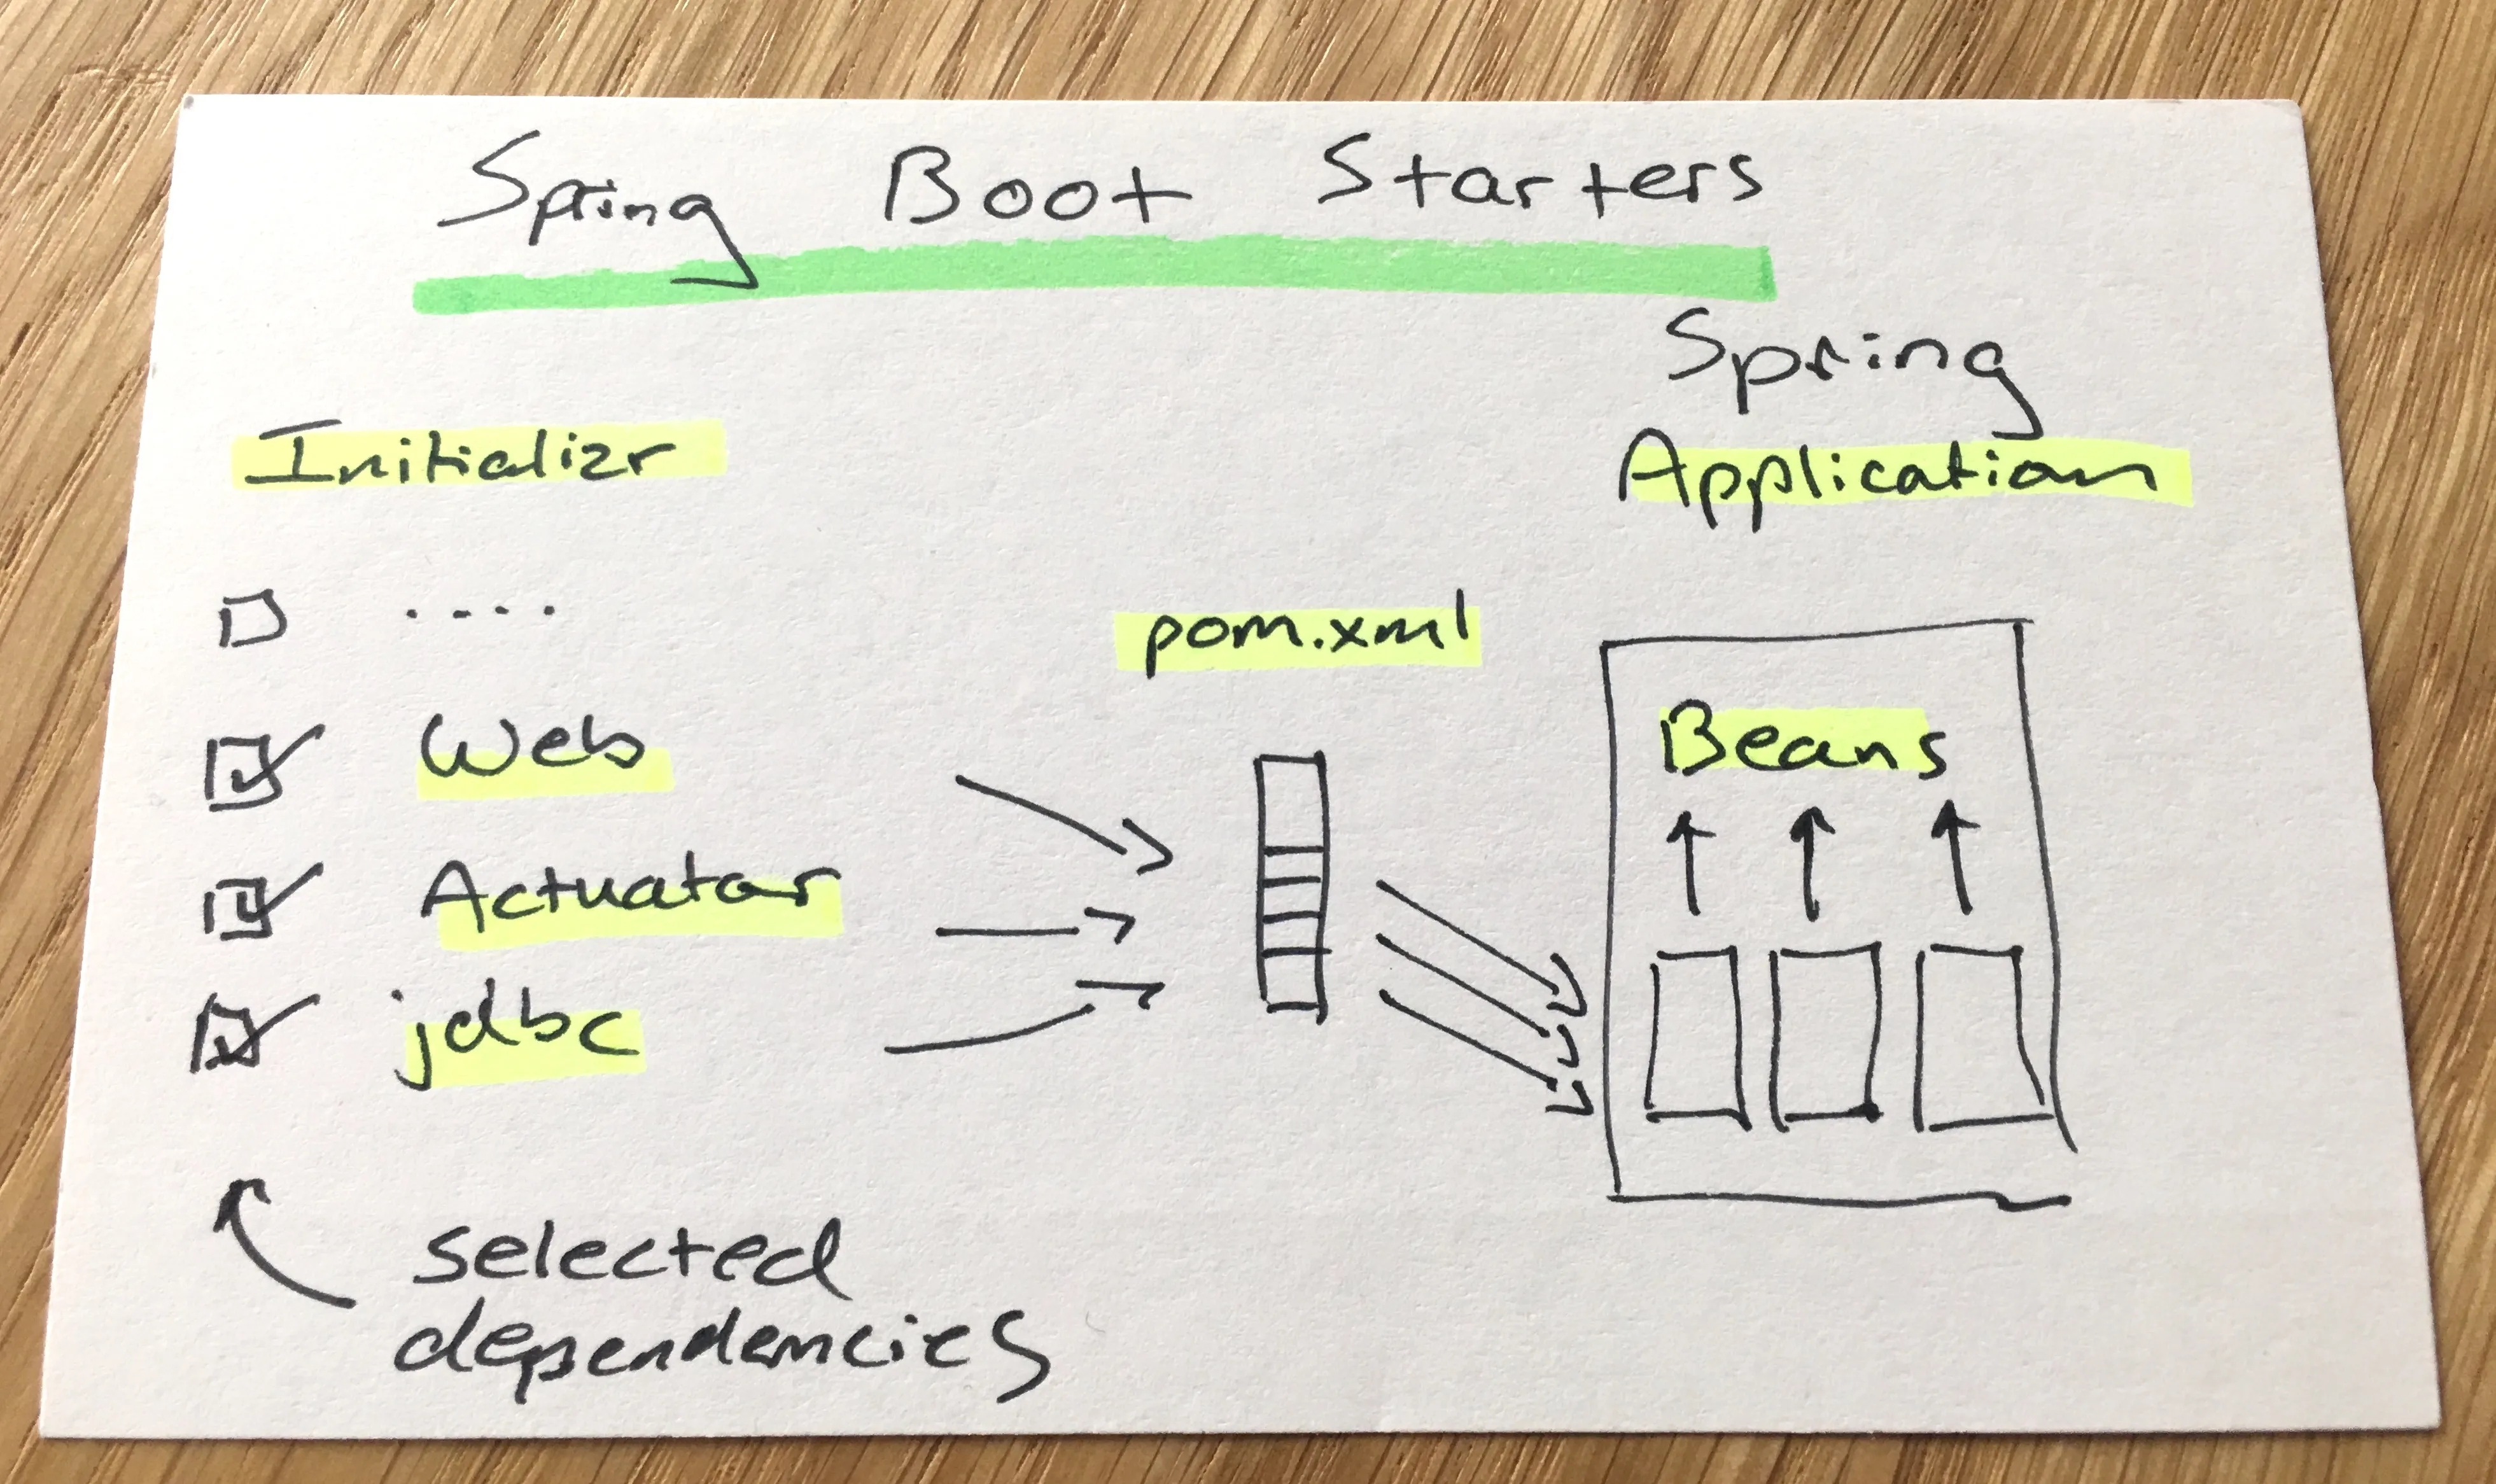 Spring Boot Starters
Spring
Application
Initializr
....
pom.xml
Web
Beans
Actuator
jdbc
selected
dependencies